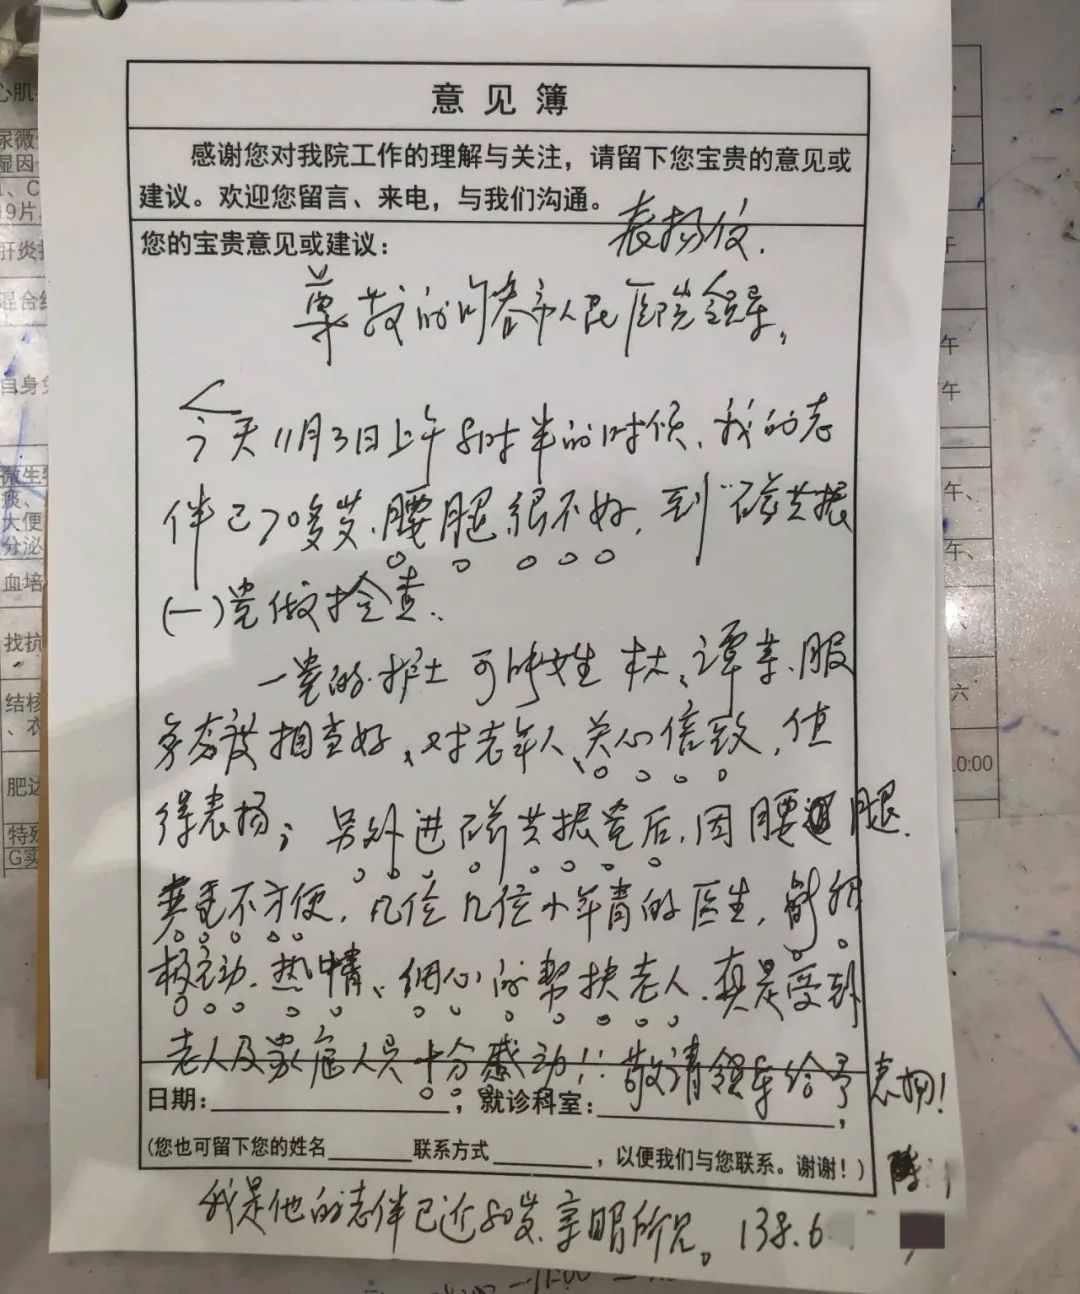 意见簿
感谢您对我院工作的理解与关注，请留下您宝贵的意见或
建议。欢迎您留言、来电，与我们沟通。
表扬信.
您的宝贵意见或建议：
尊敬的 春市人民医院领导。
今天11月3日上午8时半的时候、我的老
伴已70多岁、腰腿很不好，到“磁共振
(一)室做检查.
一室的护士 女生 林、谭 、服
务态度相当好、对老年人、关心 、值
得表扬；另外进磁共振室后，因腰 腿
不方便，几位 几位小年青的医生，
极主动、热情、细心的帮扶老人、真是受到
老人及家庭人员十分感动！！敬请领导给予表扬！
日期：，就诊科室：，
(您也可留下您的姓名联系方式，以便我们与您联系。谢谢！)
陈
我是他的老伴已近80岁、亲眼所见。138.6
心肌
尿微
湿因
自身免
大便
分泌
血培
找抗
结核
肥达
特殊
10:00